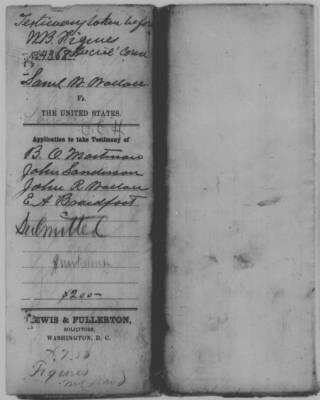 Testimony taken before
W.B. Figures
Special Com
Saml W Wallace
Vs.
THE UNITED STATES.
Application to take Testimony of
B. O.
John Sanderson
John R Wallace
E A Broadfoot
Submitted
$2.00
LEWIS & FULLERTON,
SOLICITORS,
WASHINGTON, D. C.
Figures